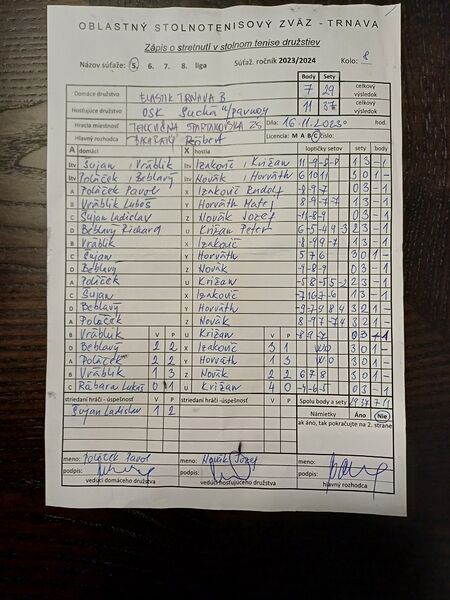 OBLASTNÝ STOLNOTENISOVÝ ZVÄZ - TRNAVA
Zápis o stretnutí v stolnom tenise družstiev
Názov súťaže: 5. 6. 7. 8. liga Súťaž. ročník 2023/2024 Kolo: 8
Body Sety
Domáce družstvo ELASTIK TRNAVA B 7 29 celkový výsledok
Hosťujúce družstvo OSK Suchá n/Parnou 11 37 celkový výsledok
Hracia miestnosť TELOCVIČŇA SPARTAKOVSKÁ ZŠ Dňa: 16.11.2023 hod.
Hlavný rozhodca Róbert Licencia: M A B C číslo:
A domáci X hostia loptičky setov sety body
štv Sujan, Vráblik štv Izakovič, Križan 11 -9 -8 -8 1 3 - 1
štv Poláček, Beblavý štv Novák, Horváth 6 10 11 3 0 1 -
A Poláček Pavol X Izakovič Rudolf -8 -9 -7 0 3 - 1
B Vráblik Luboš Y Horváth Matej -8 -9 7 -7 1 3 - 1
C Sujan Ladislav Z Novák Jozef -11 -8 -9 0 3 - 1
D Beblavý Richard U Križan Peter -6 -5 4 9 -3 2 3 - 1
B Vráblik X Izakovič -8 -9 9 -7 1 3 - 1
C Sujan Y Horváth 5 7 6 3 0 1 -
D Beblavý Z Novák -9 -8 -9 0 3 - 1
A Poláček U Križan -5 8 -5 5 -2 2 3 - 1
C Sujan X Izakovič -7 10 -7 -6 1 3 - 1
D Beblavý Y Horváth -9 -7 4 8 4 3 2 1 -
A Poláček Z Novák 8 -9 7 -7 4 3 2 1 -
B Vráblik V P U Križan V P -8 -9 -7 0 3 - 1
D Beblavý 2 2 X Izakovič 3 1 WO 3 0 1 -
A Poláček 2 2 Y Horváth 1 3 WO 3 0 1 -
B Vráblik 1 3 Z Novák 2 2 6 7 8 3 0 1 -
C Rábara Lukáš 0 1 U Križan 4 0 -4 -6 -5 0 3 - 1
striedaní hráči - úspešnosť V P striedaní hráči - úspešnosť V P Spolu body a sety 29 37 7 11
Sujan Ladislav 1 2 Námietky Áno Nie
ak áno, tak pokračujte na 2. strane
meno: Poláček Pavol meno: Novák Jozef
podpis: podpis:
vedúci domáceho družstva vedúci hosťujúceho družstva hlavný rozhodca